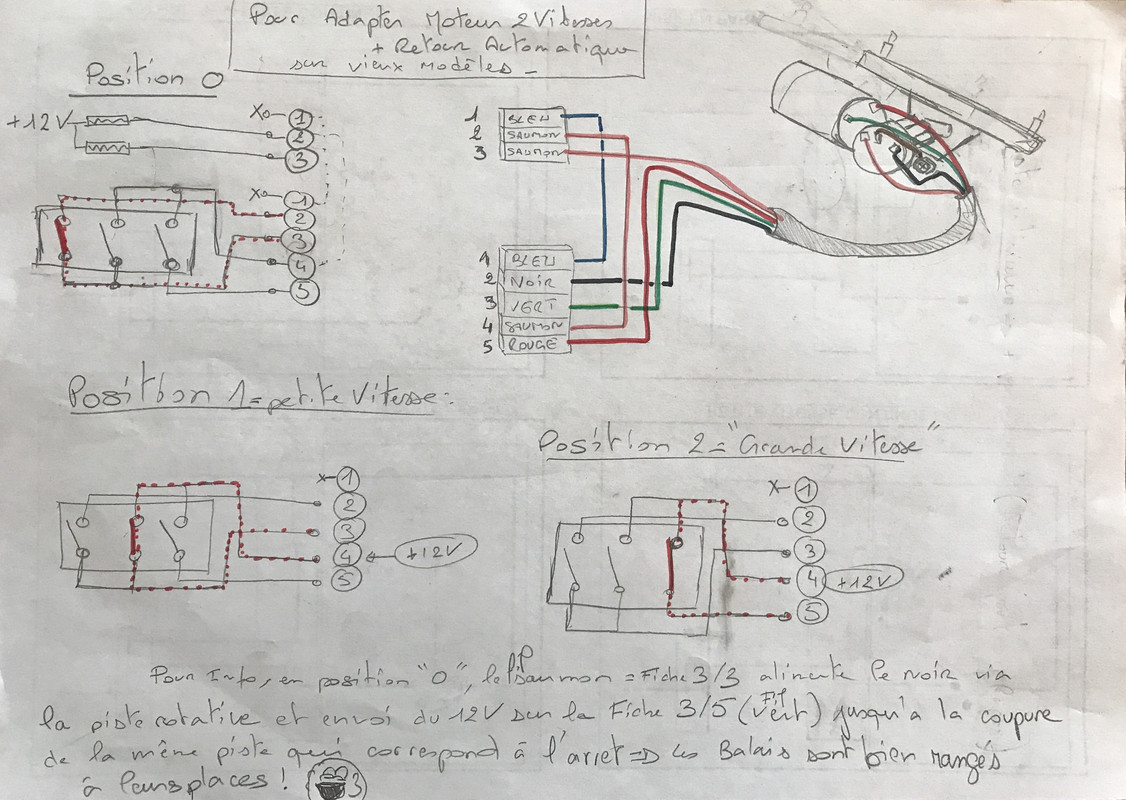 Pour Adapter Moteur 2 Vitesses
+ Retour Automatique
sur vieux Modèles -
Position 0
+12V
X 1
2
3
X 1
2
3
4
5
1 BLEU
2 SAUMON
3 SAUMON
1 BLEU
2 NOIR
3 VERT
4 SAUMON
5 ROUGE
Position 1 = petite Vitesse :
X 1
2
3
4 +12V
5
Position 2 = "Grande Vitesse"
X 1
2
3
4 +12V
5
Pour Info, en position "0", le fil saumon = Fiche 3/3 alimente le noir via
la piste rotative et envoi du 12V sur la Fiche 3/5 (Fil Vert) jusqu'a la coupure
de la même piste qui correspond à l'arret => Les Balais sont bien rangés
à leurs places !